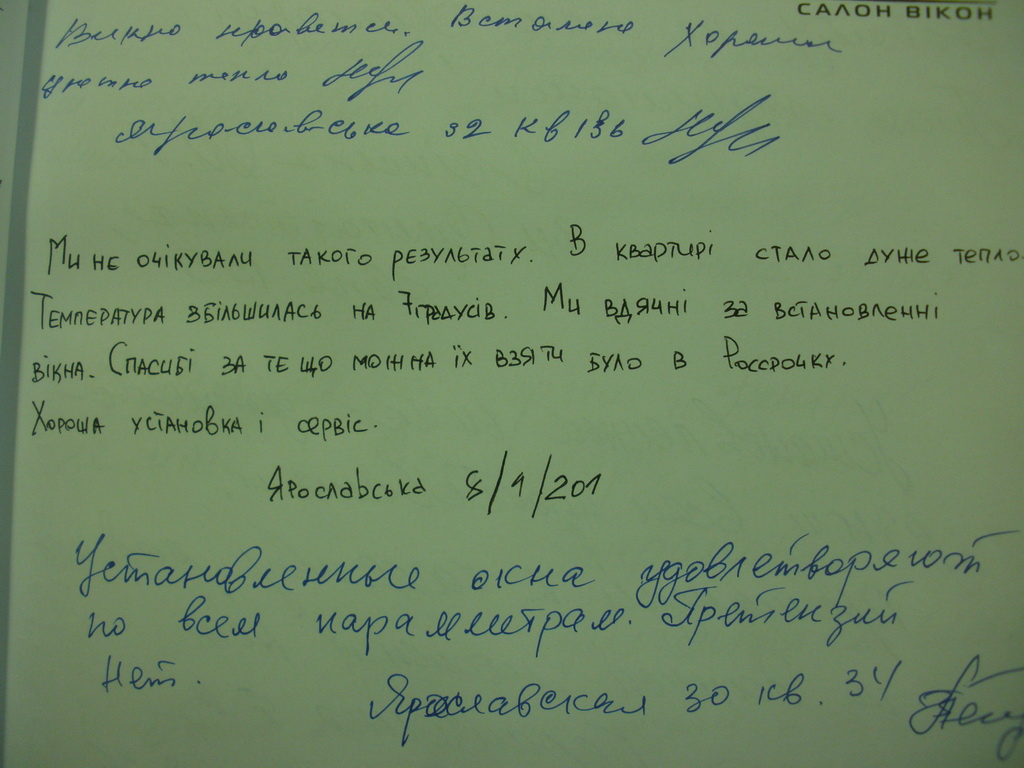 САЛОН ВІКОН
Викно нраветси. Встамено Хорошо
уютно тепло
Ярославська 32 кв 136
Ми не очікували такого результату. В квартирі стало дуже тепло.
Температура збільшилась на 7 градусів. Ми вдячні за встановленні
вікна. Спасибі за те що можна їх взяти було в Россрочку.
Хороша установка і сервіс.
Ярославська 8/1/201
Установленные окна удовлетворяют
по всем параметрам. Претензий
нет.
Ярославская 30 кв. 34